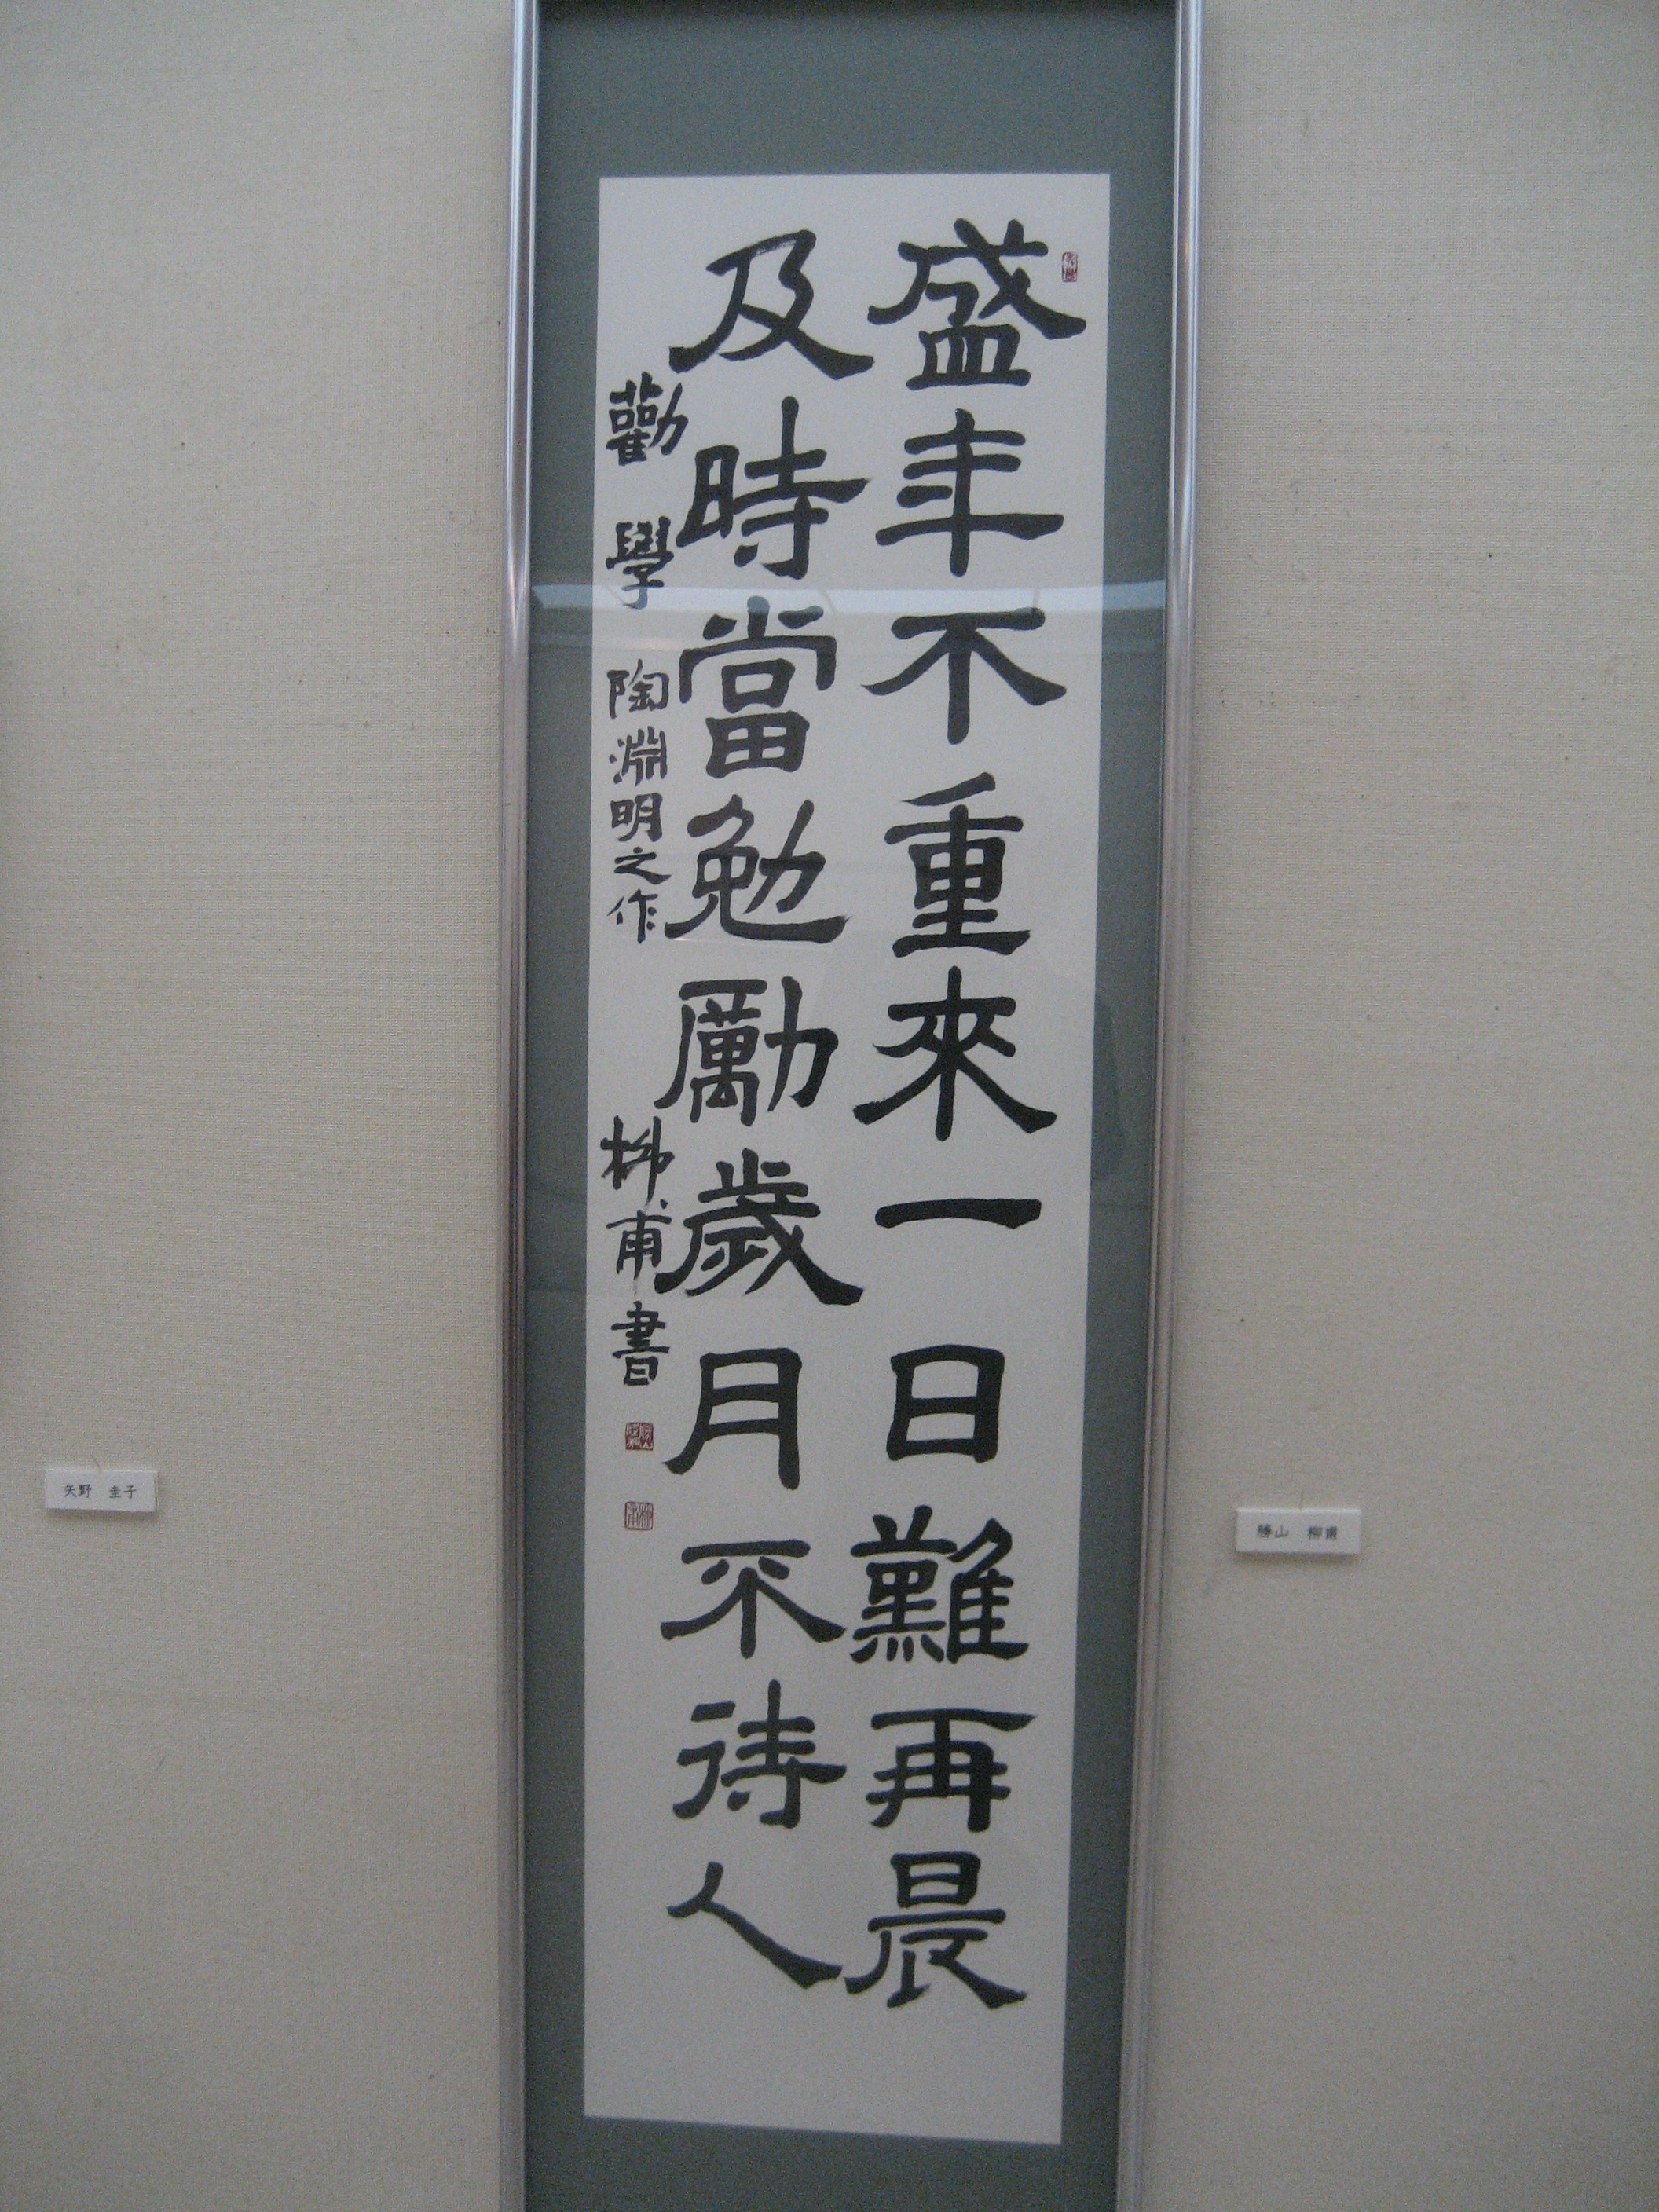 盛年不重來一日難再晨
及時當勉勵歲月不待人
勸學 陶淵明之作 柳甫書
矢野 圭子
勝山 柳甫